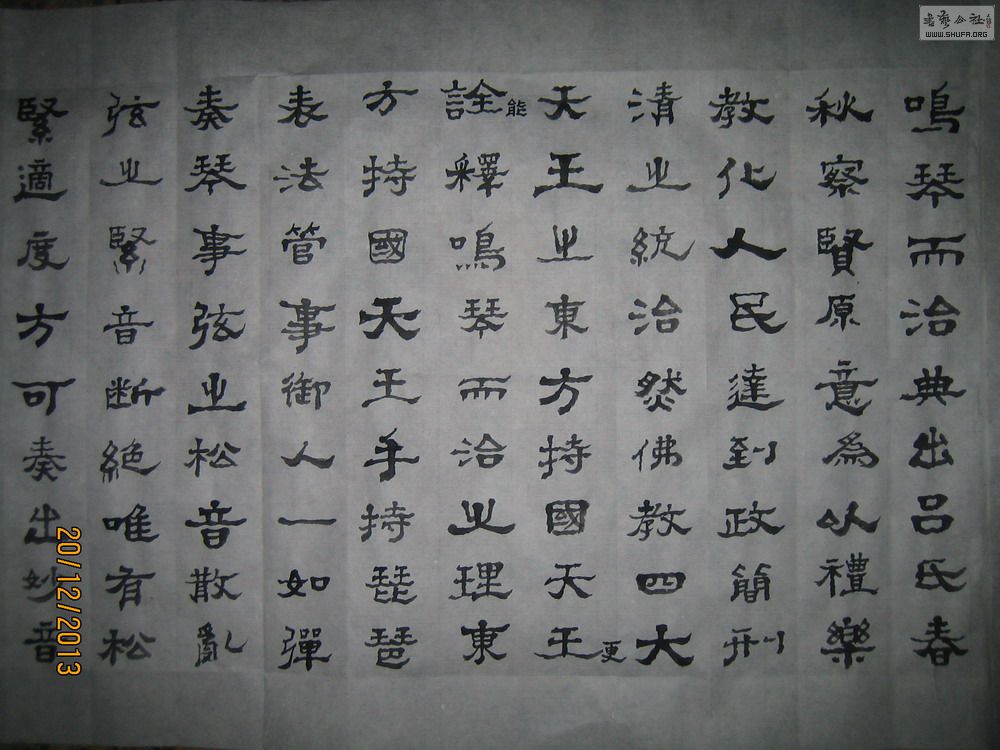 鳴琴而治典出吕氏春
秋察賢原意為以禮樂
教化人民達到政簡刑
清之統治然佛教四大
天王之東方持國天王更
詮釋鳴琴而治之理東能
方持國天王手持琵琶
表法管事御人一如彈
奏琴事弦之松音散亂
弦之緊音斷絕唯有松
緊適度方可奏出妙音
20/12/2013
書藝公社
WWW.SHUFA.ORG